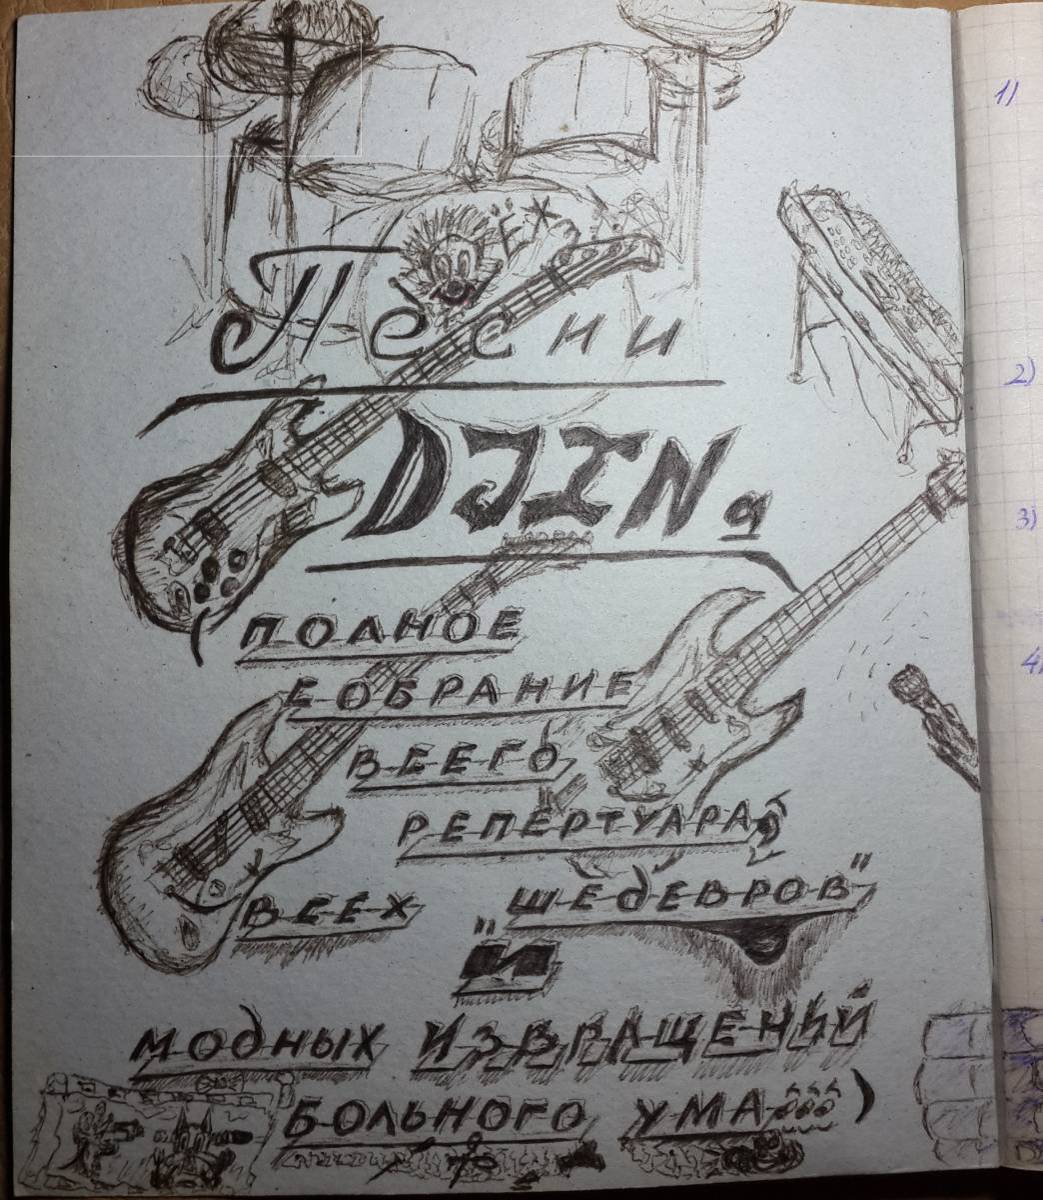 ЁЖ
Песни
DJINа
(ПОЛНОЕ
СОБРАНИЕ
ВСЕГО
РЕПЕРТУАРА,
ВСЕХ "ШЕДЕВРОВ"
И
МОДНЫХ ИЗВРАЩЕНИЙ
БОЛЬНОГО УМА)
1)
2)
3)
4)